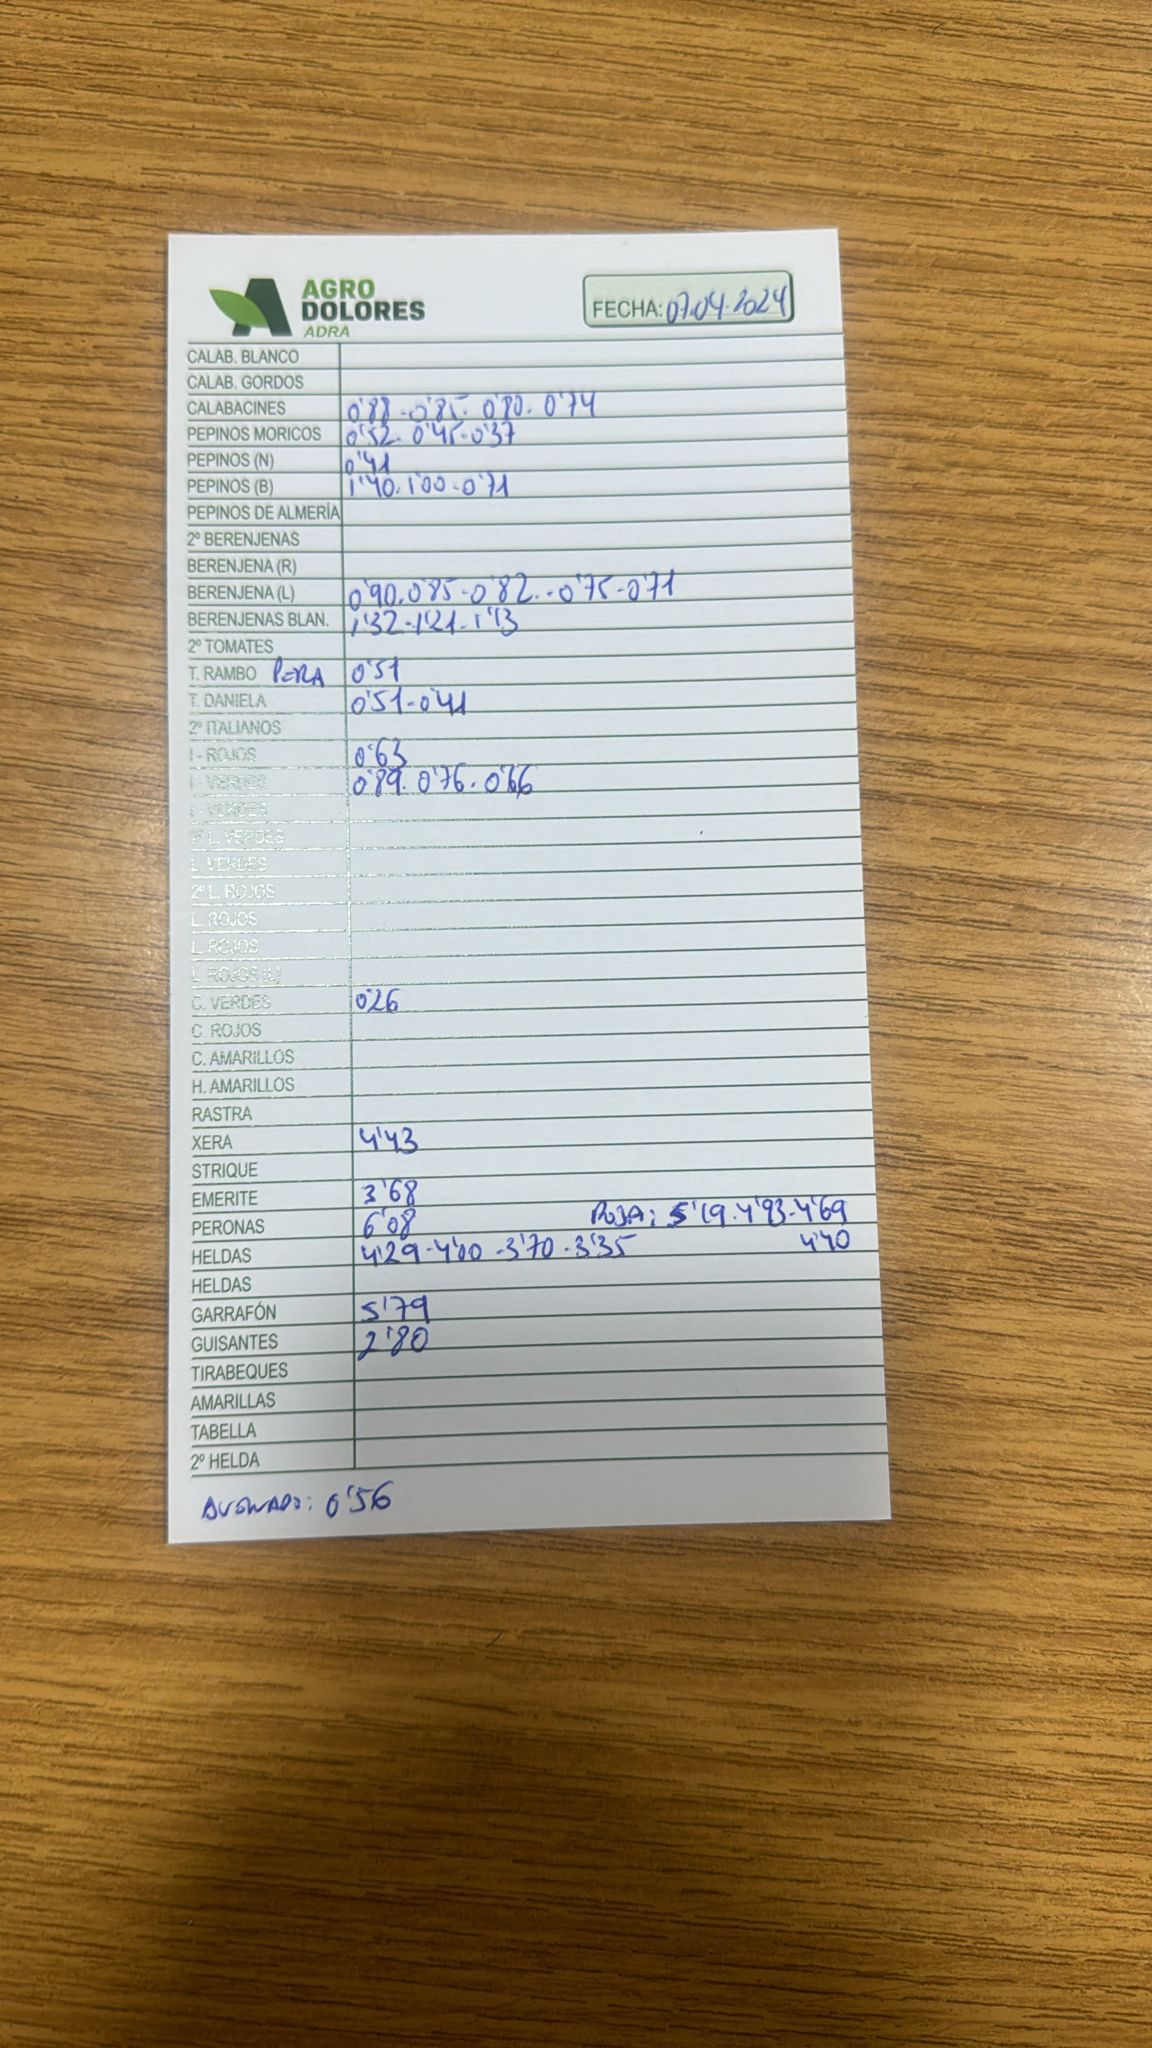 AGRO
DOLORES
ADRA
FECHA: 07.04.2024
CALAB. BLANCO
CALAB. GORDOS
CALABACINES 0'88-0'85. 0'80. 0'74
PEPINOS MORICOS 0'52. 0'45-0'37
PEPINOS (N) 0'41
PEPINOS (B) 1'40. 1'00-0'71
PEPINOS DE ALMERÍA
2º BERENJENAS
BERENJENA (R)
BERENJENA (L) 0'90. 0'85-0'82.-0'75-0'71
BERENJENAS BLAN. 1'32-1'21. 1'13
2º TOMATES
T. RAMBO PERA 0'51
T. DANIELA 0'51-0'41
2º ITALIANOS
I - ROJOS 0'63
I - VERDES 0'89. 0'76. 0'66
I - VERDES
2º L. VERDES
L. VERDES
2º L. ROJOS
L. ROJOS
L. ROJOS
L. ROJOS (L)
C. VERDES 0'26
C. ROJOS
C. AMARILLOS
H. AMARILLOS
RASTRA
XERA 4'43
STRIQUE
EMERITE 3'68
PERONAS 6'08 ROJA: 5'19. 4'93-4'69
HELDAS 4'29-4'00-3'70-3'35 4'40
HELDAS
GARRAFÓN 5'79
GUISANTES 2'80
TIRABEQUES
AMARILLAS
TABELLA
2º HELDA
0'56